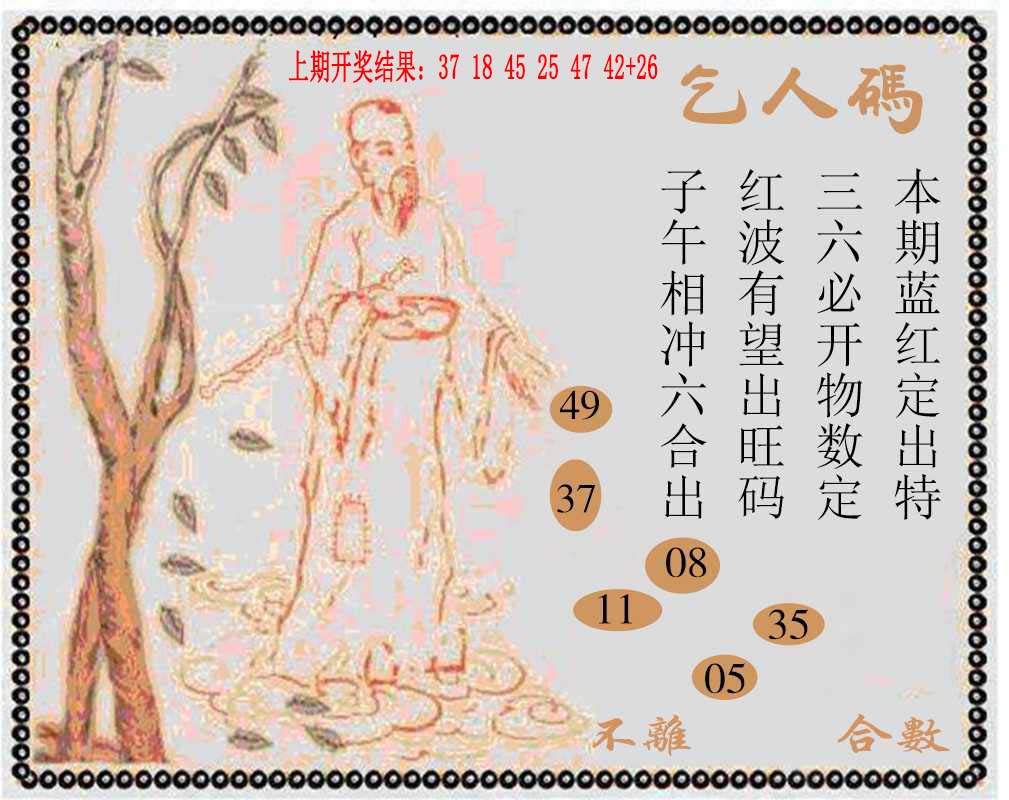 上期开奖结果：37 18 45 25 47 42+26
乞人碼
本期蓝红定出特
三六必开物数定
红波有望出旺码
子午相冲六合出
49
37
08
11
35
05
不離
合數